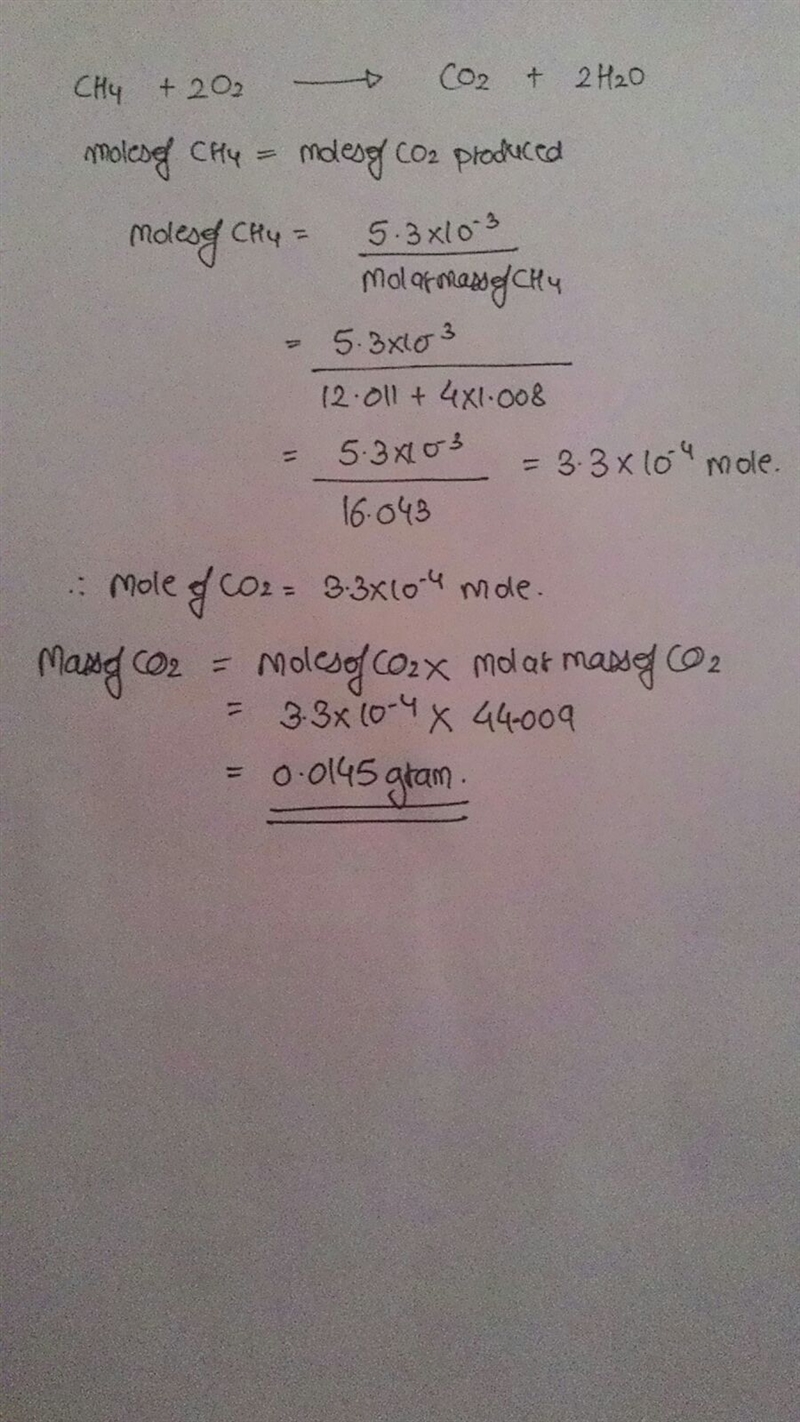 CH4 + 2O2 → CO2 + 2H2O
moles of CH4 = moles of CO2 produced
Moles of CH4 = 5.3x10-3
Molar mass of CH4
= 5.3x10-3
12.011 + 4x1.008
= 5.3x10-3 = 3.3x10-4 mole.
16.043
∴ Mole of CO2 = 3.3x10-4 mole.
Mass of CO2 = Moles of CO2 x molar mass of CO2
= 3.3x10-4 x 44.009
= 0.0145 gram.